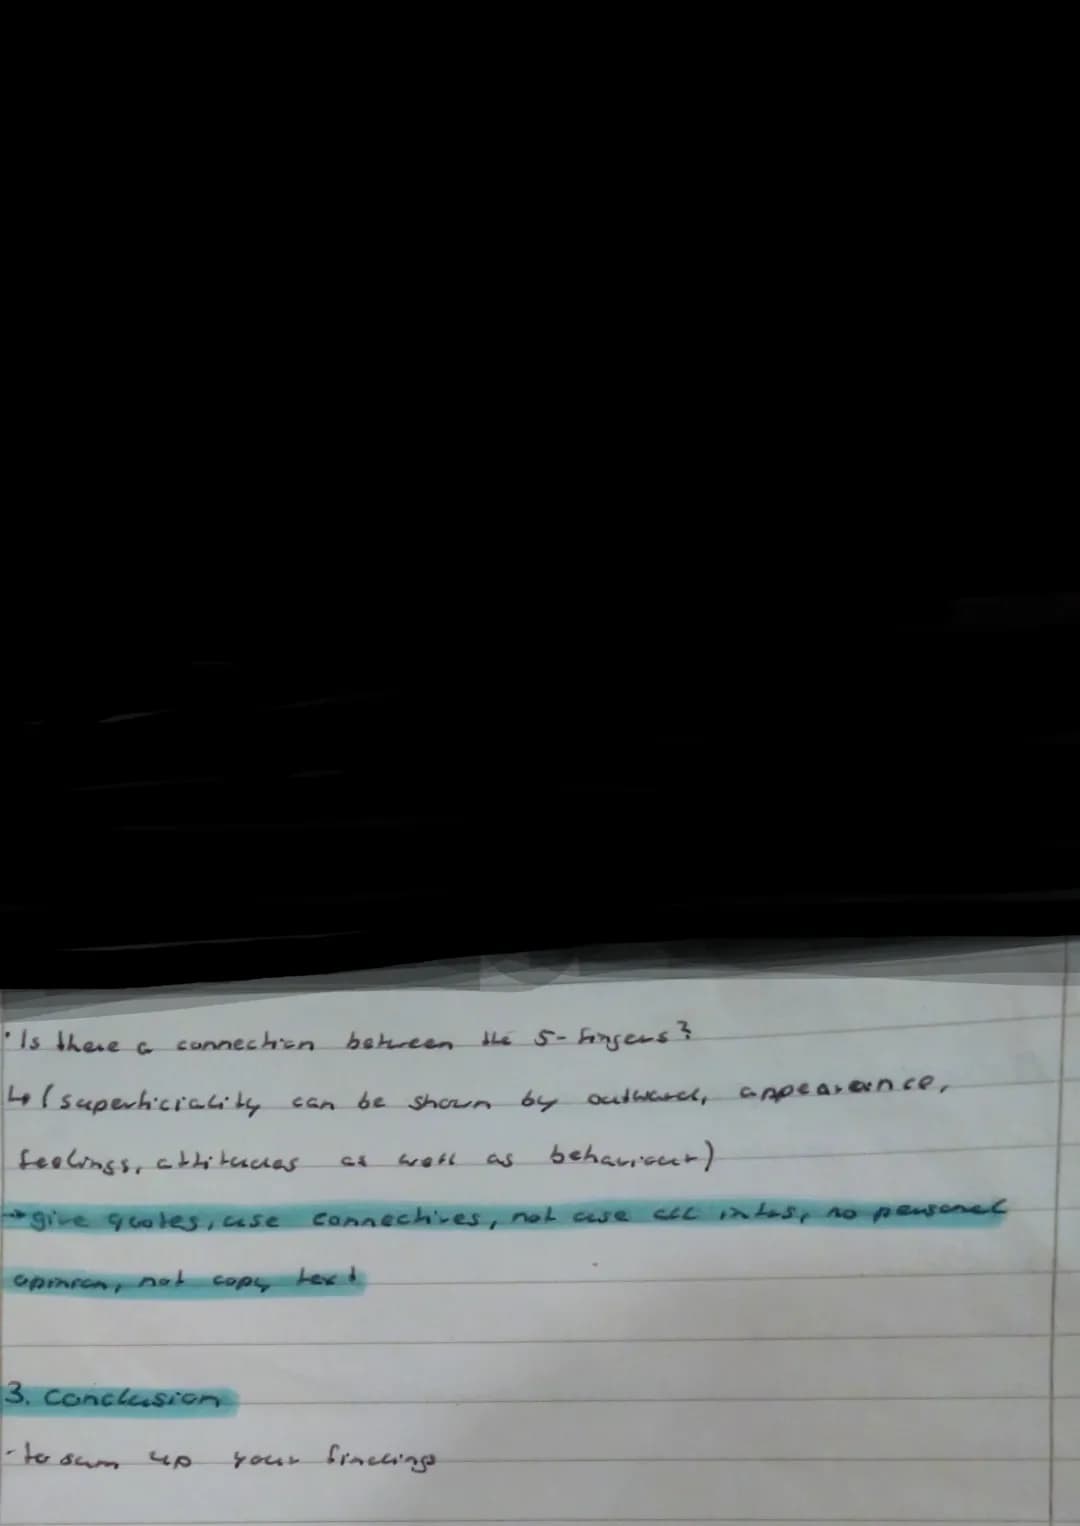 • Is there a connection between the 5-fingers?
↳ (superficiality can be shown by outward, appearance,
feelings, attitudes as well as behaviour)
→ give quotes, use connectives, not use all infos, no personal
opinion, not copy text
3. Conclusion
- to sum up your findings